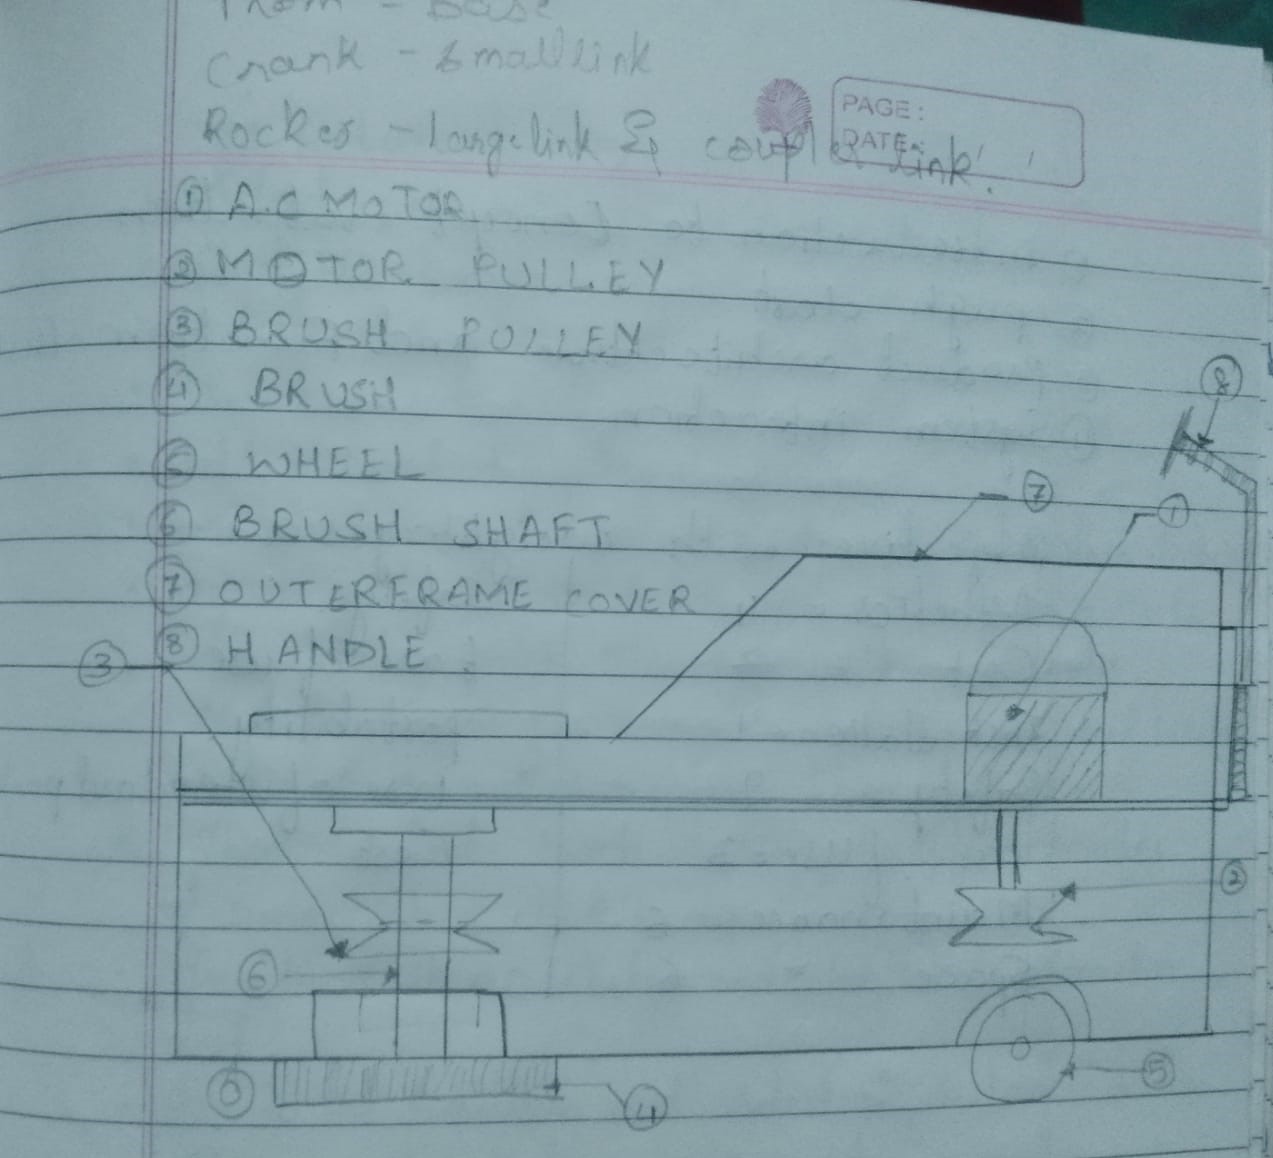 From - Base
Crank - Small link
Rocker - large link & coupler link.
PAGE:
DATE:
① A.C MOTOR
② MOTOR PULLEY
③ BRUSH PULLEY
④ BRUSH
⑤ WHEEL
⑥ BRUSH SHAFT
⑦ OUTERFRAME COVER
⑧ HANDLE
⑧
⑦
①
③
②
⑥
⑤
④